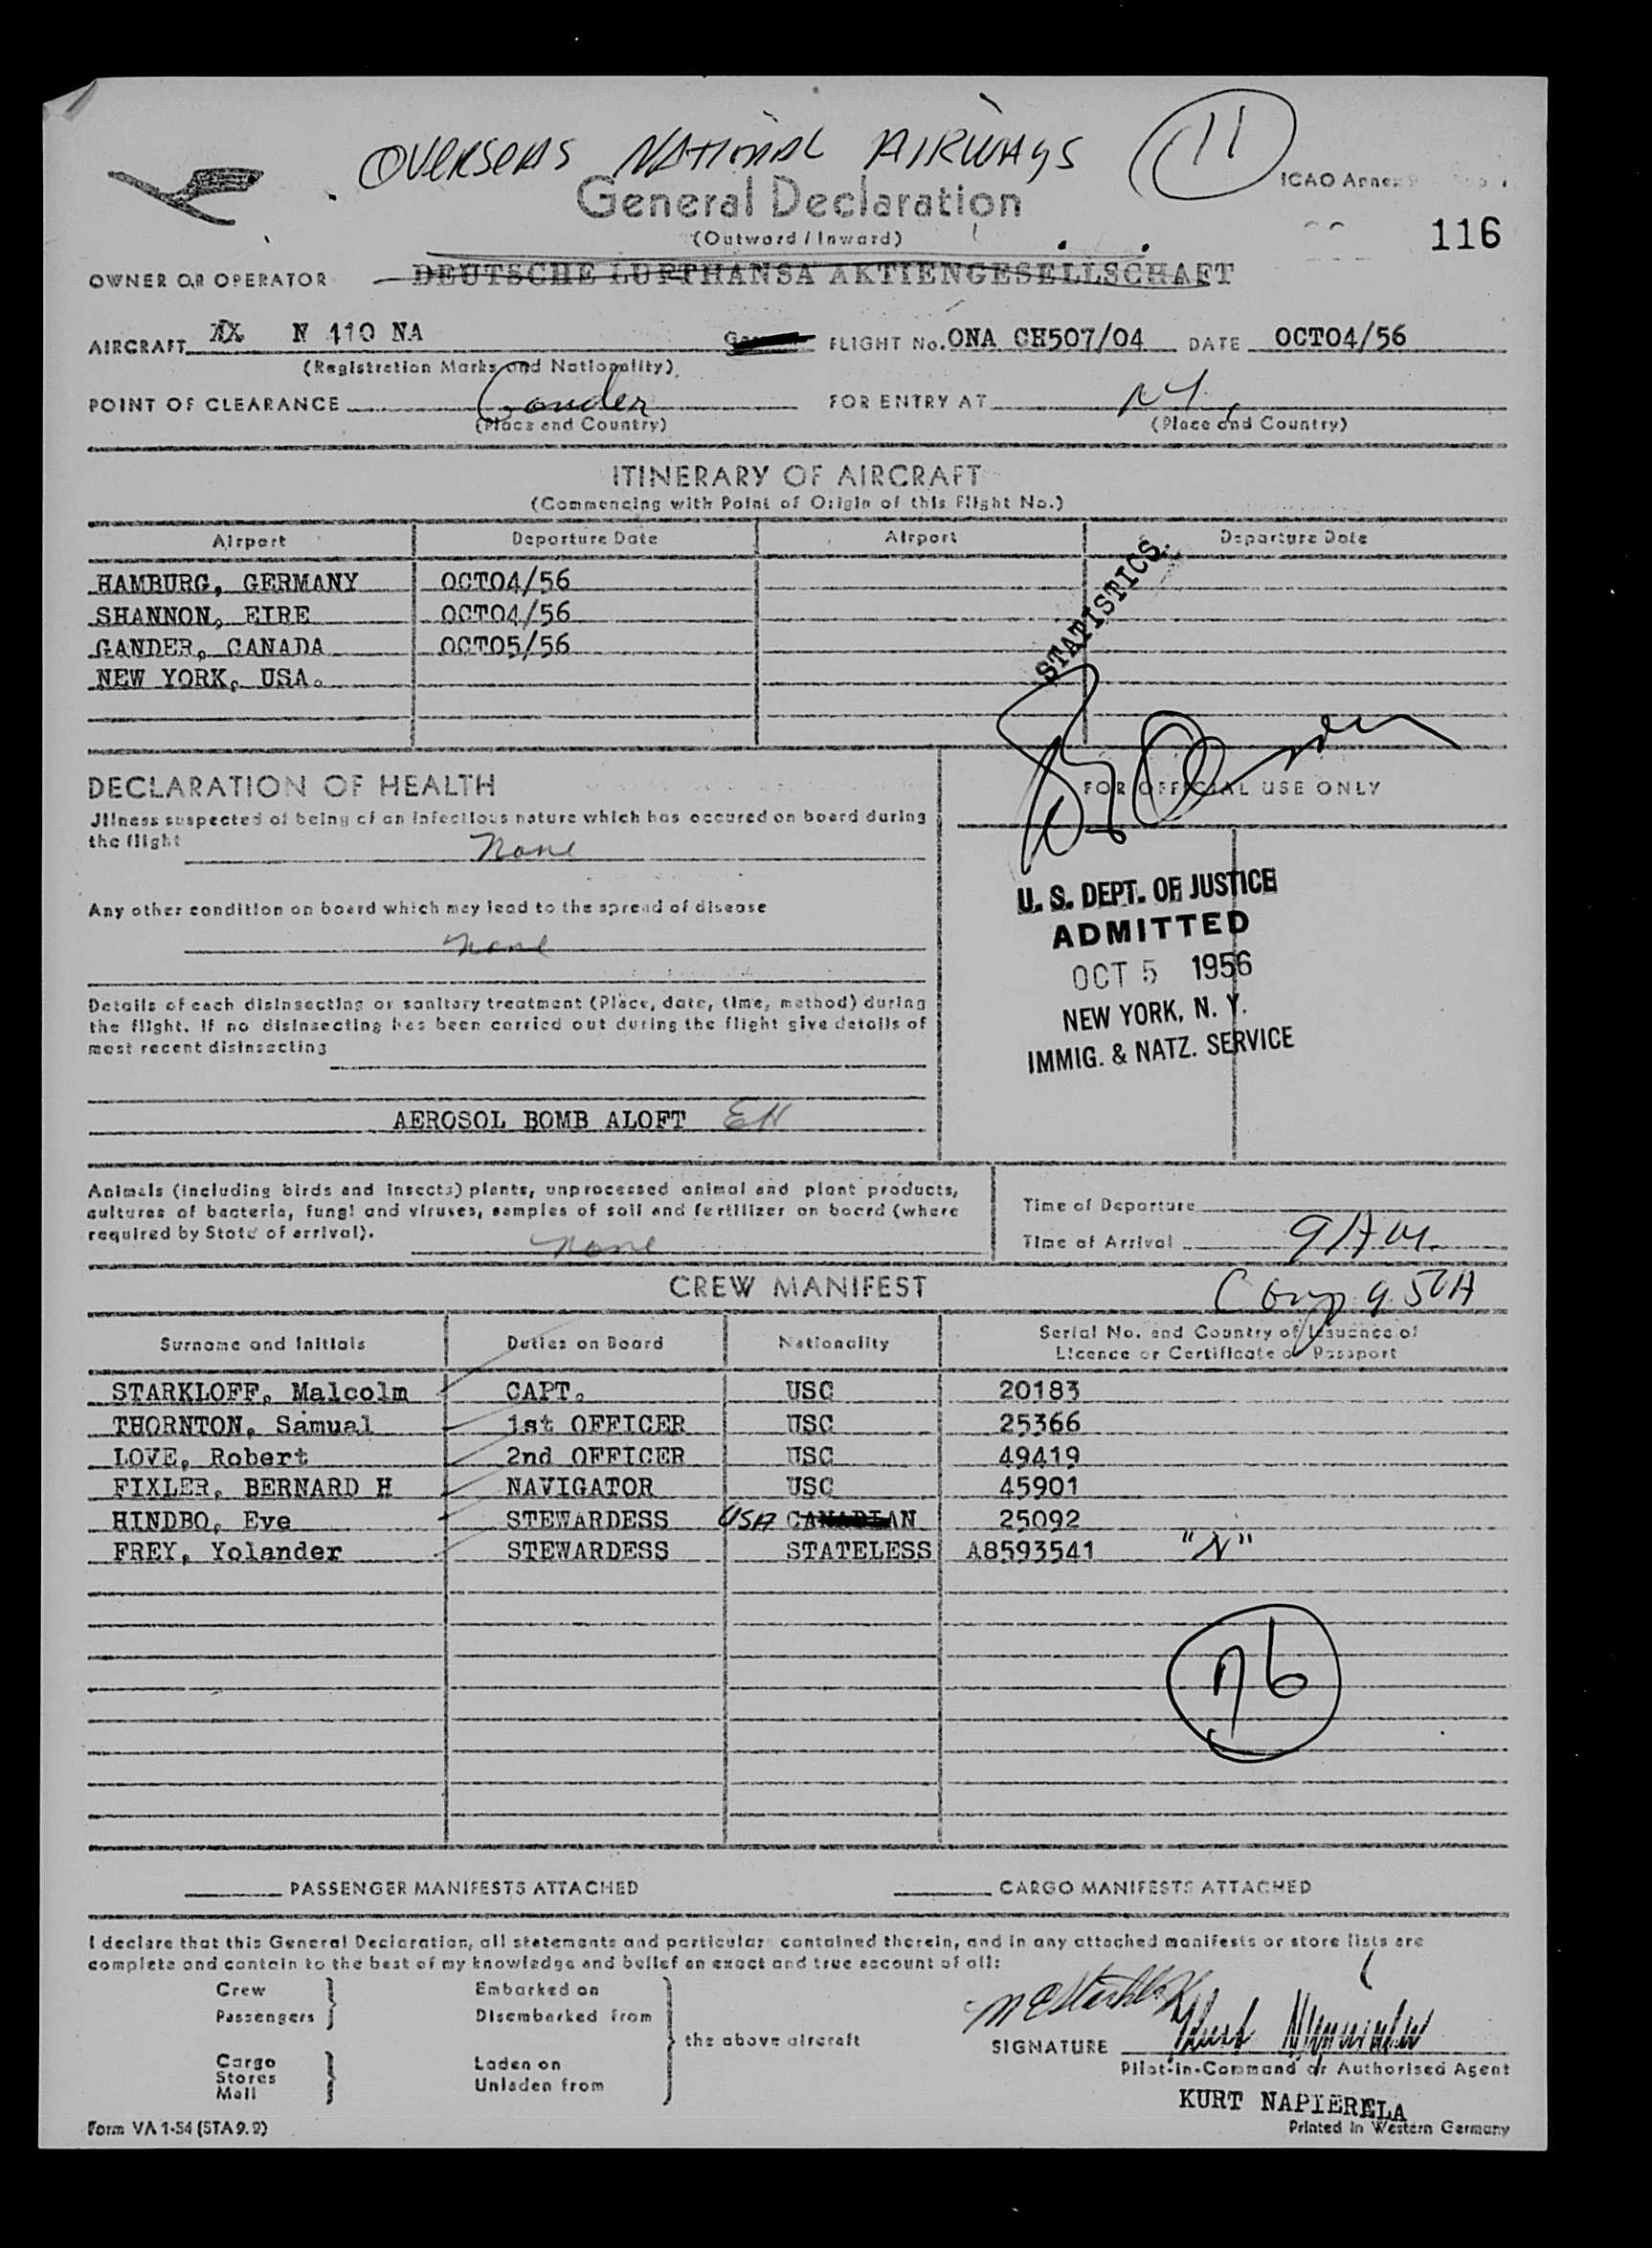 OVERSEAS NATIONAL AIRWAYS 11
ICAO Annex 9
General Declaration
(Outward / Inward)
116
OWNER OR OPERATOR DEUTSCHE LUFTHANSA AKTIENGESELLSCHAFT
AIRCRAFT XX N 110 NA FLIGHT No. ONA CH507/04 DATE OCT04/56
(Registration Marks and Nationality)
POINT OF CLEARANCE Gander FOR ENTRY AT NY
(Place and Country) (Place and Country)
ITINERARY OF AIRCRAFT
(Commencing with Point of Origin of this Flight No.)
Airport Departure Date Airport Departure Date
HAMBURG, GERMANY OCT04/56
SHANNON, EIRE OCT04/56
GANDER, CANADA OCT05/56
NEW YORK, USA.
STATISTICS.
DECLARATION OF HEALTH
FOR OFFICIAL USE ONLY
Illness suspected of being of an infectious nature which has occured on board during
the flight None
Any other condition on board which may lead to the spread of disease
None
Details of each disinsecting or sanitary treatment (Place, date, time, method) during
the flight. If no disinsecting has been carried out during the flight give details of
most recent disinsecting
AEROSOL BOMB ALOFT EH
U. S. DEPT. OF JUSTICE
ADMITTED
OCT 5 1956
NEW YORK, N. Y.
IMMIG. & NATZ. SERVICE
Animals (including birds and insects) plants, unprocessed animal and plant products,
cultures of bacteria, fungi and viruses, samples of soil and fertilizer on board (where
required by State of arrival). None
Time of Departure
Time of Arrival 9 AM
CREW MANIFEST
Comp 9.50A
Surname and Initials Duties on Board Nationality Serial No. and Country of Issuance of
Licence or Certificate or Passport
STARKLOFF, Malcolm CAPT. USC 20183
THORNTON, Samual 1st OFFICER USC 25366
LOVE, Robert 2nd OFFICER USC 49419
FIXLER, BERNARD H NAVIGATOR USC 45901
HINDBO, Eve STEWARDESS USA CANADIAN 25092
FREY, Yolander STEWARDESS STATELESS A8593541 "N"
PASSENGER MANIFESTS ATTACHED CARGO MANIFESTS ATTACHED
I declare that this General Declaration, all statements and particulars contained therein, and in any attached manifests or store lists are
complete and contain to the best of my knowledge and belief an exact and true account of all:
Crew Embarked on
Passengers Disembarked from
the above aircraft
Cargo Laden on
Stores
Mail Unladen from
SIGNATURE
Pilot-in-Command or Authorised Agent
KURT NAPIERELA
Form VA 1-54 (STA 9.9) Printed in Western Germany